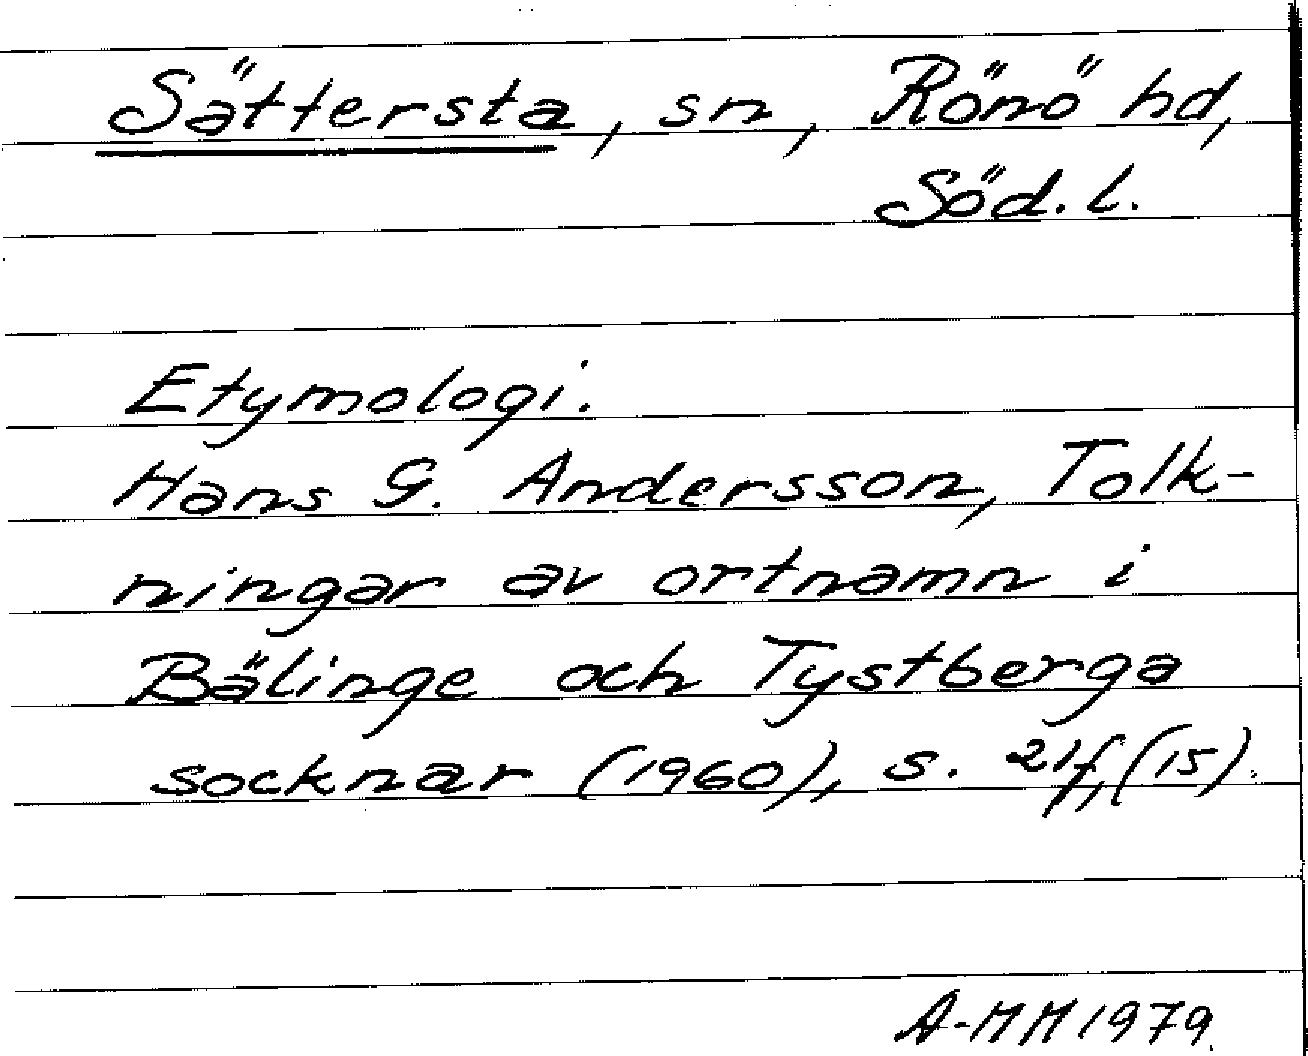 Sättersta, sn, Rönö hd,
Söd. l.
Etymologi.
Hans G. Andersson, Tolk-
ningar av ortnamn i
Bälinge och Tystberga
socknar (1960), s. 21f, (15).
A-MH 1979.